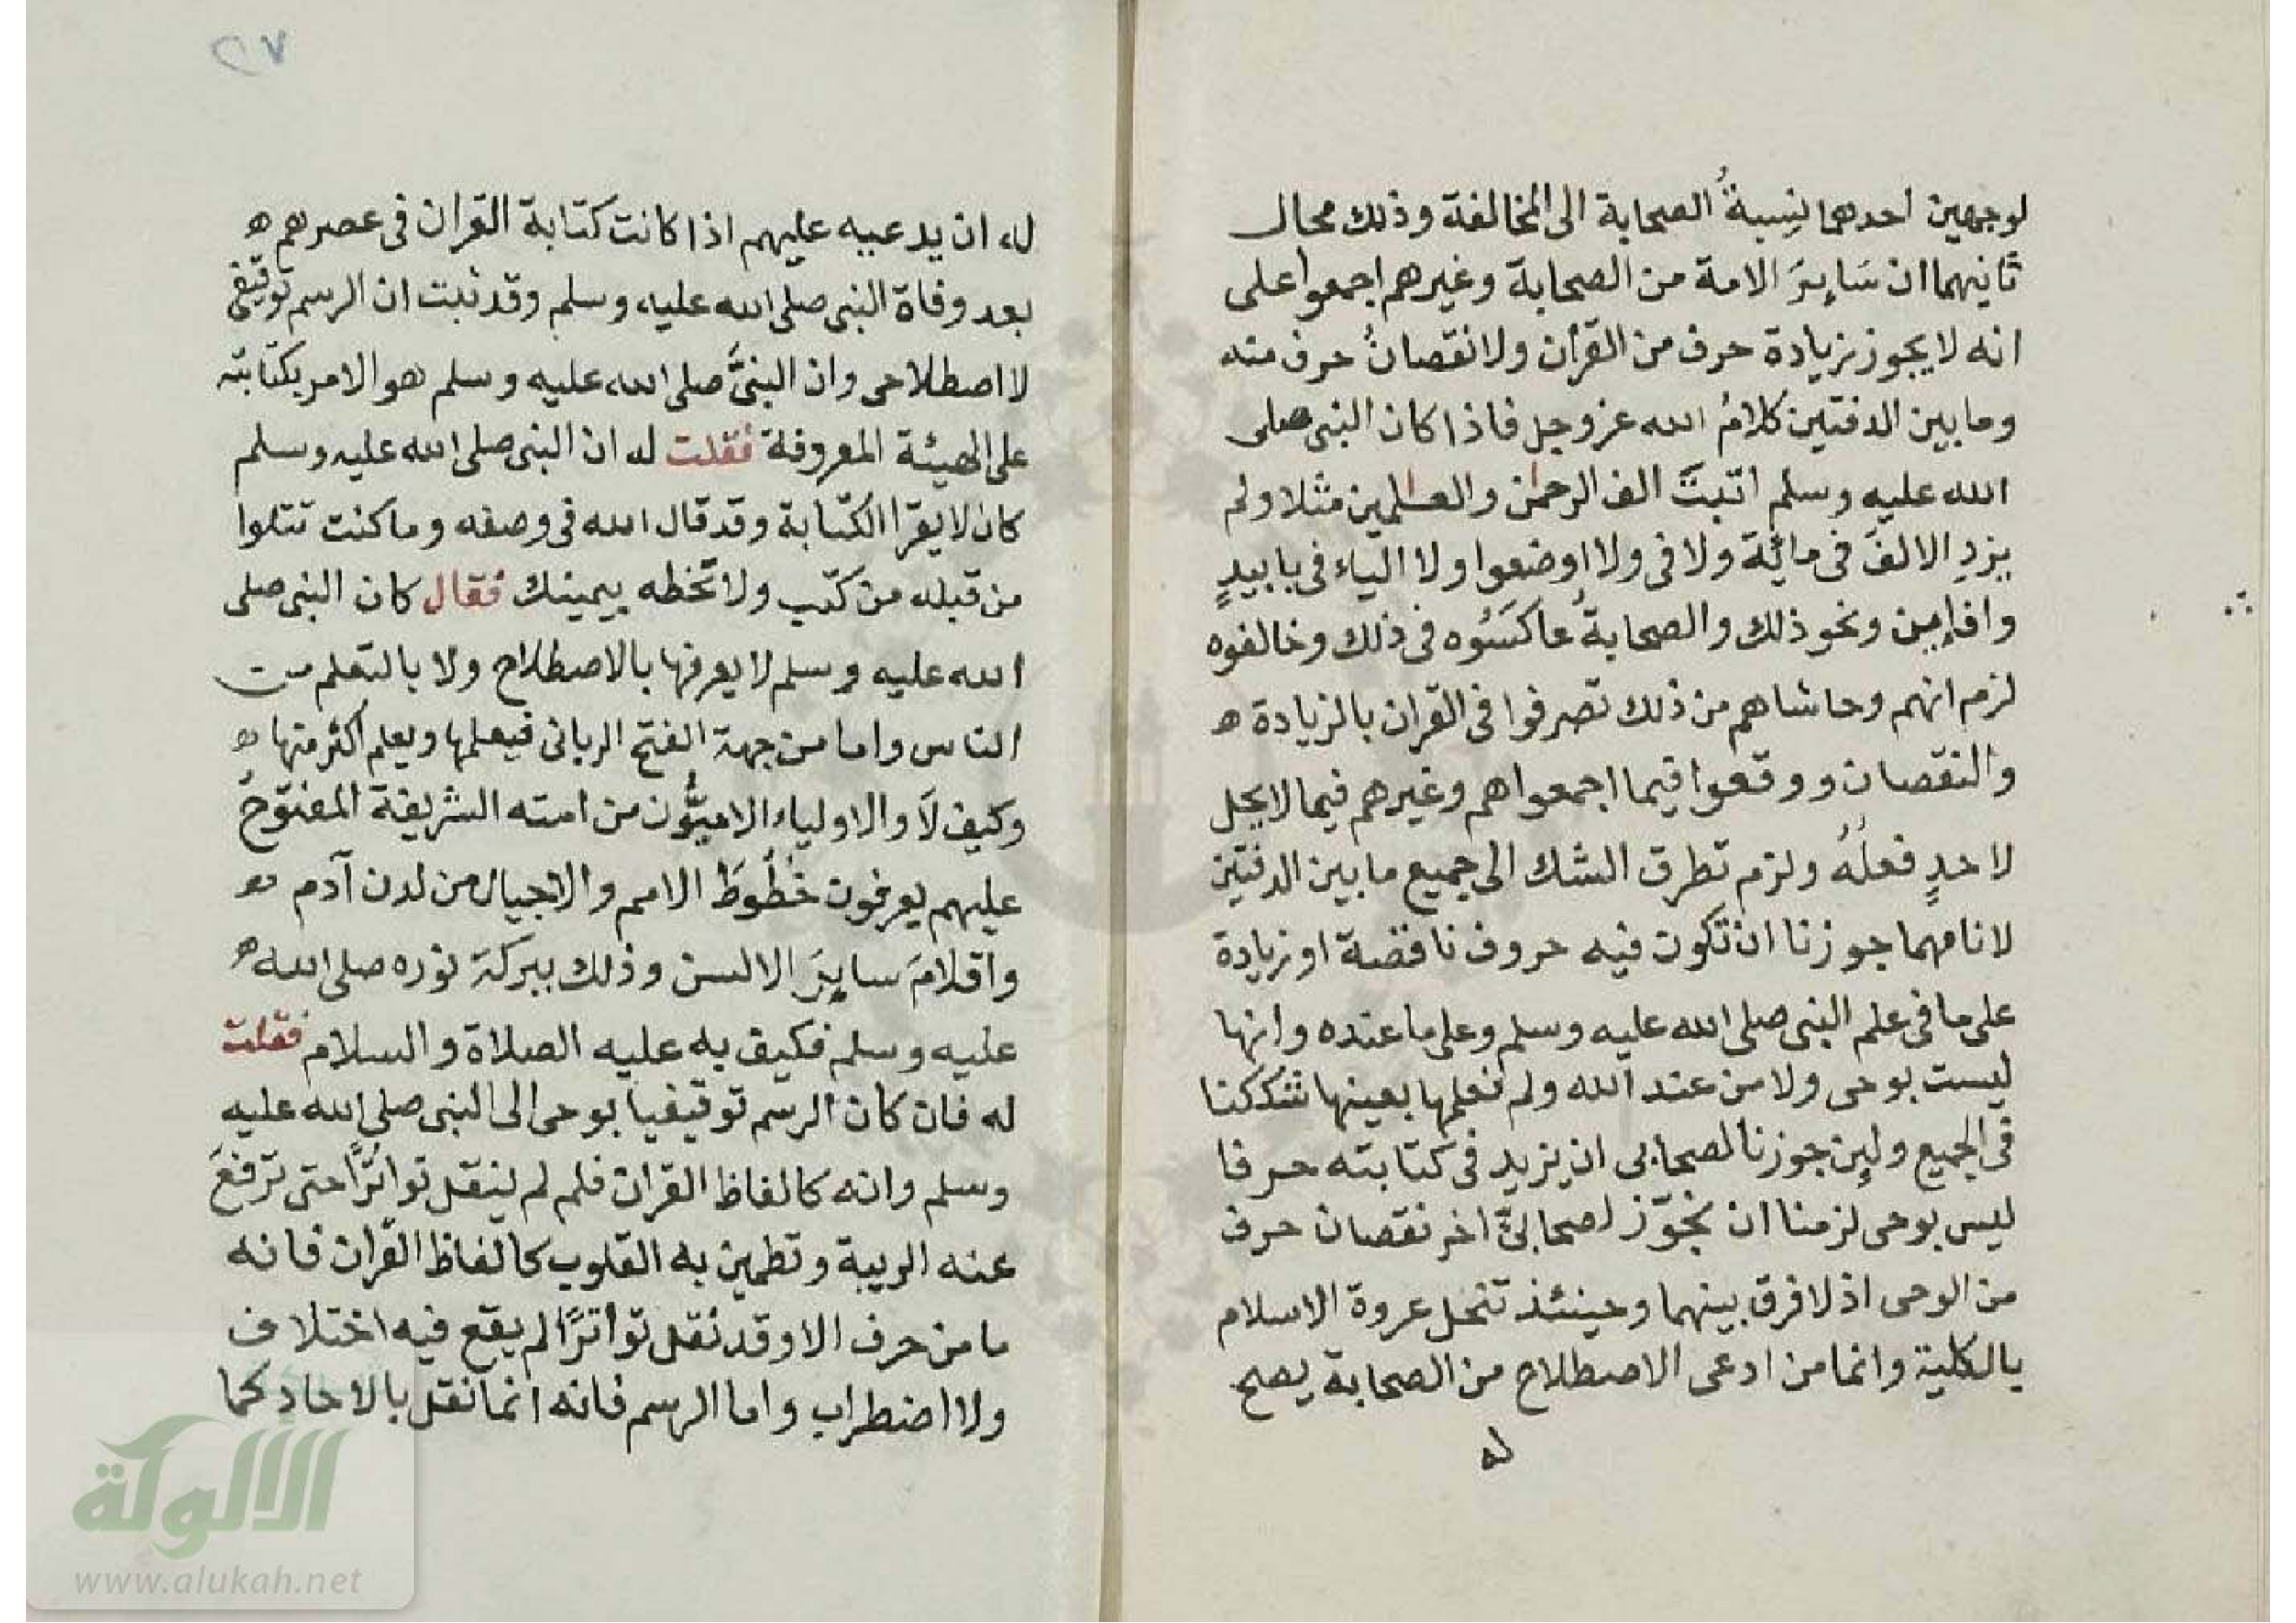 لوجهين احدهما نِسبةُ الصحابة الى المخالفة وذلك محال
ثانيهما ان سَايِرَ الامة من الصحابة وغيرهم اجمعوا على
انه لا يجوز زيادة حرف من القرأن ولا نقصانُ حرف منه
وما بين الدفتين كلامُ الله عز وجل فاذا كان النبى صلى
الله عليه وسلم اثبتَ الف الرحمٰن والعٰلمين مثلا ولم
يزد الالفَ فى مائة ولا فى ولا اوضعوا ولا الياء فى باييدٍ
وافاين ونحو ذلك والصحابةُ عاكَسُوه فى ذلك وخالفوه
لزم انهم وحاشاهم من ذلك تصرفوا فى القران بالزيادة ه
والنقصان ووقعوا فيما اجمعوا هم وغيرهم فيما لا يحل
لاحدٍ فعلُهُ ولزم تطرق الشك الى جميع ما بين الدفتين
لانا مهما جوزنا ان تكون فيه حروف ناقصة او زيادة
على ما فى علم النبى صلى الله عليه وسلم وعلى ما عنده وانها
ليست بوحى ولا من عند الله ولم نعلمها بعينها شككنا
فى الجميع ولين جوزنا لصحابى ان يزيد فى كتابته حرفا
ليس بوحى لزمنا ان نجوّز لصحابىٍّ اخر نقصان حرف
من الوحى اذ لا فرق بينهما وحينئذ تنحل عروة الاسلام
بالكلية وانما من ادعى الاصطلاح من الصحابة يصح
له
٢٧
له ان يدعيه عليهم اذا كانت كتابة القران فى عصرهم ه
بعد وفاة النبى صلى الله عليه وسلم وقد ثبت ان الرسم توقيفى
لا اصطلاحى وان النبىَّ صلى الله عليه وسلم هو الامر بكتابته
على الهيئة المعروفة فقلت له ان النبى صلى الله عليه وسلم
كان لا يقرا الكتابة وقد قال الله فى وصفه وما كنت تتلوا
من قبله من كتب ولا تخطه بيمينك فقال كان النبى صلى
الله عليه وسلم لا يعرفها بالاصطلاح ولا بالتعلم من
الناس واما من جهة الفتح الربانى فيعلمها ويعلم اكثر منها ه
وكيف لَا والاولياء الاميُّون من امته الشريفة المفتوح
عليهم يعرفون خُطُوطَ الامم والاجيال من لدن آدم ه
واقلامَ سايِرَ الالسن وذلك ببركة نوره صلى الله ه
عليه وسلم فكيف به عليه الصلاة والسلام فقلت
له فان كان الرسم توقيفيا بوحى الى النبى صلى الله عليه
وسلم وانه كالفاظ القران فلم لم ينقل تواترًا حتى ترفعَ
عنه الريبة وتطمين به القلوب كالفاظ القران فانه
ما من حرف الا وقد نقل تواترًا لم يقع فيه اختلاف
ولا اضطراب واما الرسم فانه انما نقل بالاحاد كما
الألوكة
www.alukah.net